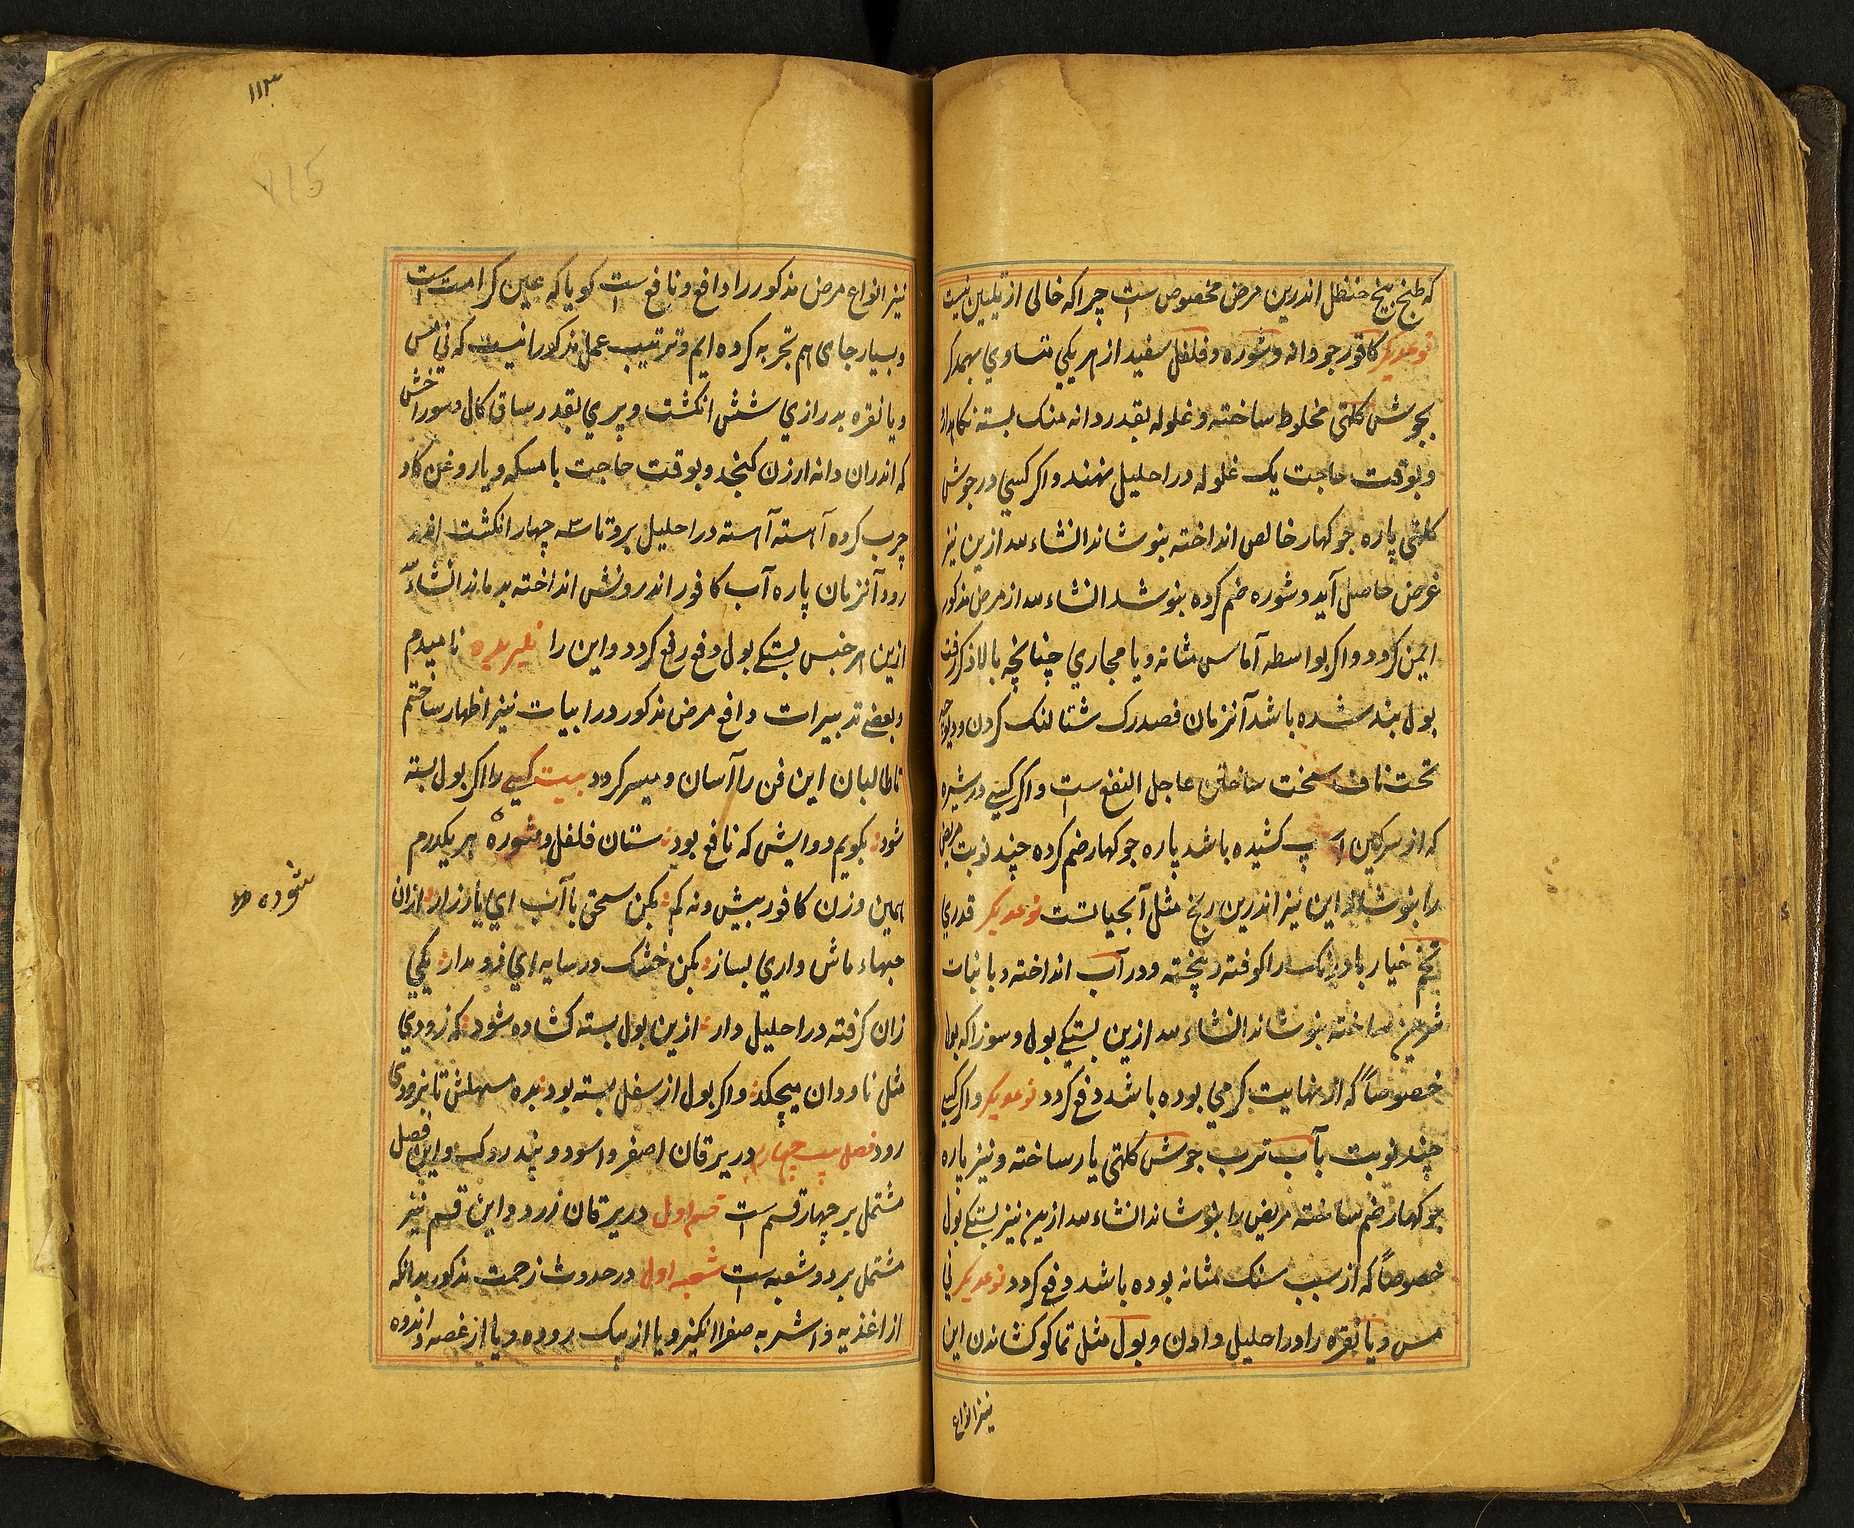 که طبخ بیخ حنظل اندرین مرض مخصوص است چرا که خالی از تلیین نیست
نوعدیکر کافور جودانه و شوره و فلفل سفید از هر یکی متساوی بهمدکر
بجوش کلتی مخلوط ساخته و غلوله بقدر دانه منک بسته نکاهدارد
و بوقت حاجت یک غلوله در احلیل نهند و اکر کسی در جوش
کلتی پاره جوکهار خالص انداخته بنوشاند انشاء الله ازین نیز
غرض حاصل آید و شوره ضم کرده بنوشد انشاء الله از مرض مذکور
ایمن کردد و اکر بواسطه آماس مثانه و یا مجاری چنانچه بالا ذکر رفت
بول بند شده باشد آنزمان فصد رک شتالنک کردن و دیوچه
تحت ناف سخت ساختن عاجل النفع است و اکر کسی در شیره
که از سرکین اسپ کشیده باشد پاره جوکهار ضم کرده چند نوبت مریض
را بنوشاند این نیز اندرین رنج مثل آبحیاتست نوعدیکر قدری
تخم خیار بادرنک را کوفته و پخته و در آب انداخته و با نبات
شیرین ساخته بنوشاند انشاء الله ازین بستکی بول و سوزاکه بول
خصوصاً که از نهایت کرمی بوده باشد دفع کردد نوعدیکر و اکر کسی
چند نوبت بآب ترب جوش کلتی یار ساخته و نیز پاره
جوکهار ضم ساخته مریض را بنوشاند انشاء الله ازین نیز بستکی بول
خصوصاً که از سبب سنک مثانه بوده باشد دفع کردد نوعدیکر نی
مس و یا نقره را در احلیل دادن و بول مثل تماکو کشاندن این
نیز انواع
١١٣
نیز انواع مرض مذکور را دافع و نافع است کویا که عین کرامت است
و بسیار جای هم تجربه کرده ایم و ترتیب عمل مذکور اینست که نی مس
و یا نقره بدرازی شش انکشت و پری بقدر ساق کال و سوراخش
که اندران دانه ارزن کنجد و بوقت حاجت با مسکه و یا روغن کاو
چرب کرده آهسته آهسته در احلیل برد تا سه چهار انکشت اندر
رود آنزمان پاره آب کافور اندرونش انداخته بدماند انشاء الله
ازین هر جنس بستکی بول دفع رفع کردد و این را نامیدم
و بعضی تدبیرات دافع مرض مذکور در ابیات نیز اظهار ساختم
تا طالبان این فن را آسان و میسر کردد بیت کسی را اکر بول بسته
شود بکویم دوایش که نافع بود ستان فلفل و شوره هر یکدرم
همین وزن کافور بیش و نه کم بکن سحق با آب ای یار زار ازان
حبهاء ماش واری بساز بکن خشک در سایه ای نرد مدار یکی
زان کرفته در احلیل دار ازین بول بسته کشاده شود که زودی
مثل ناودان میچکد و اکر بول از سفل بسته بود بده مسهلش تا بزودی
رود فصل بیست چهارم در یرقان اصفر و اسود و پندروک و این فصل
مشتمل بر چهار قسم است قسم اول در یرقان زرد و این قسم نیز
مشتمل بر دو شعبه است شعبه اول در حدوث زحمت مذکور بدانکه
از اغذیه و اشربه صفرا انکیز و یا از پیک بروده و یا از غصه و اندوه
شوره